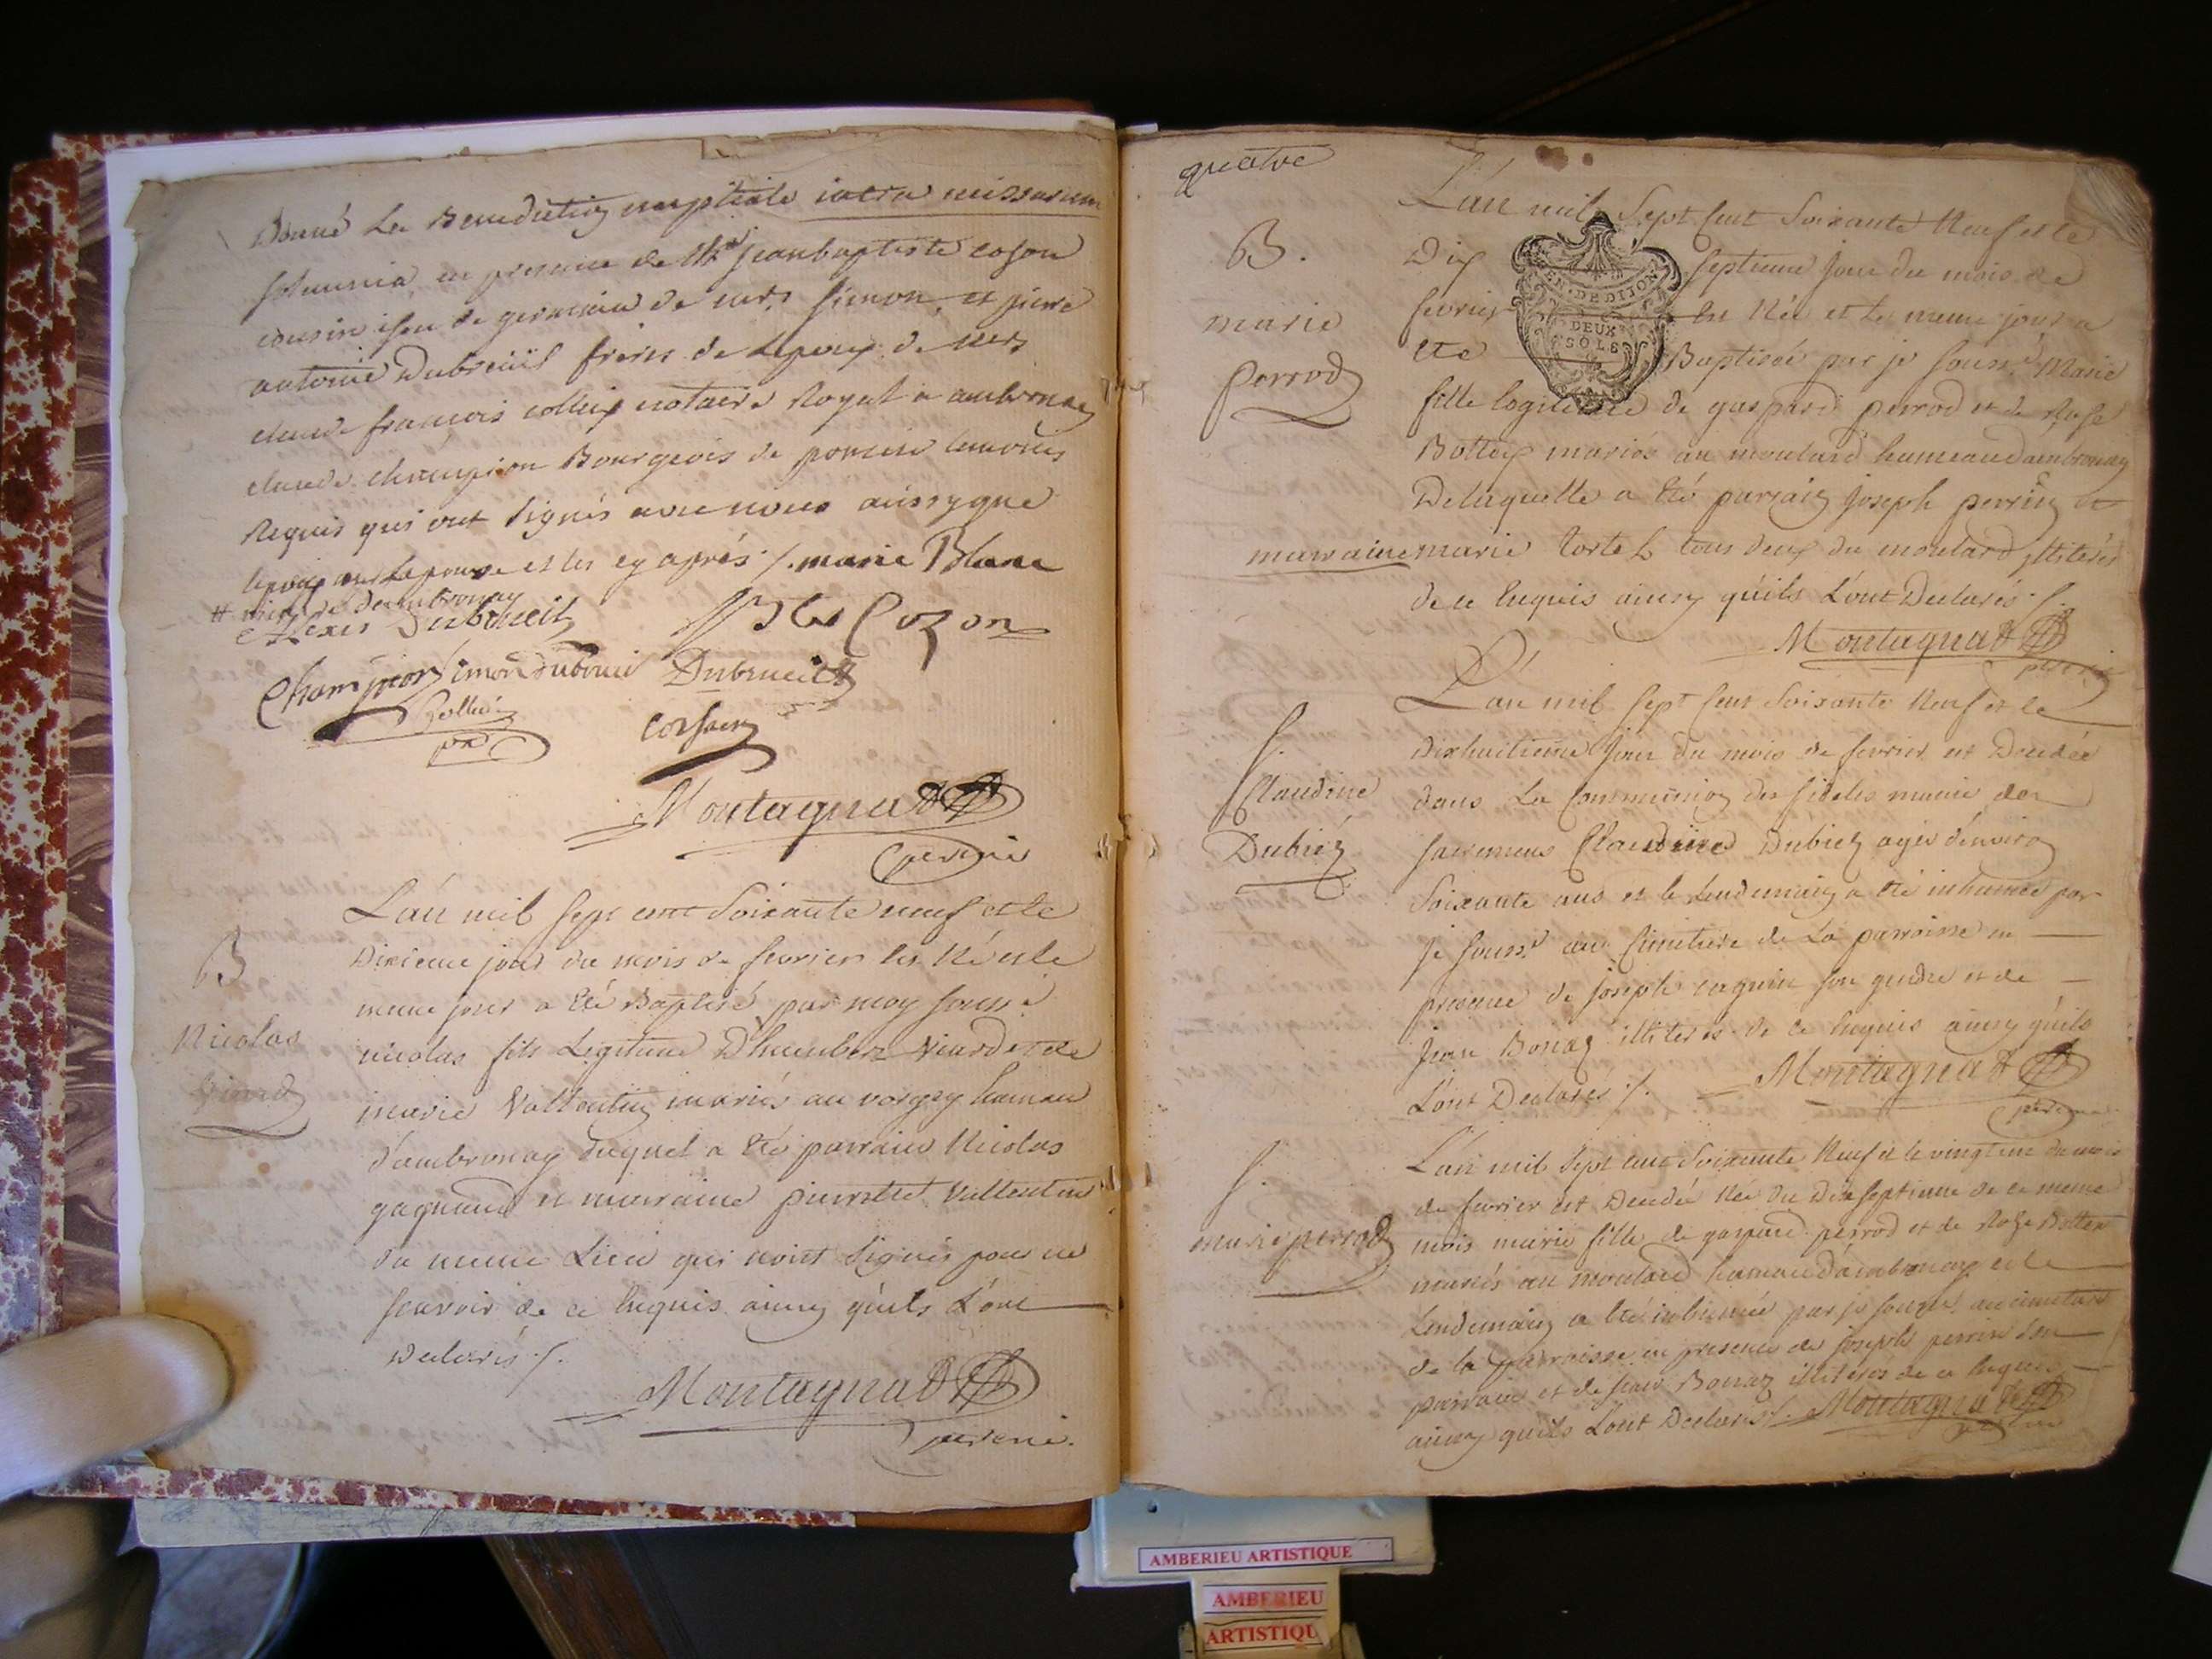 Donné La Benediction nuptiale intra missarum
solemnia, en presence de Mr jeanbaptiste cozon
cousin issu de germain de mrs. simon, et pierre
antoine Dubreüil freres de Lepoux, de Mrs
claude francois collin notaire Royal a ambronay
claude champion Bourgeois de poncin temoins
Requis qui ont signés avec nous aussy que
lepoux et Lepouse et les cy après ./. marie Blanc
# d'ambronay
alexis Dubreüil
JB Cozon
Champion simon dubreüil Dubreuil
Collin
Montagnat
L'an mil sept cent soixante neuf et le
Dixieme jour du mois de fevrier est Né et le
meme jour a été Baptisé par moy souss.é
B
Nicolas
Viard
nicolas fils Legitime D'humbert Viard et de
marie Vallentin mariés au vorgey hameau
d'ambronay duquel a été parrain Nicolas
gagneux et marraine pierrette Vallentin
du meme Lieu qui n'ont signés pour ne
scavoir de ce Enquis ainsy qu'ils L'ont
Declarés ./.
Montagnat
quatre
B.
marie
perrod
L'an mil Sept Cent Soixante Neuf et le
Dix septieme jour du mois de
fevrier est Née et Le meme jour a
été Baptisée par je souss.é Marie
EN. DE DIJON
DEUX
SOLS
fille legitime de gaspard perrod et de Rose
Bottex mariés au moulard hameau d'ambronay
De laquelle a été parrain joseph perrin et
marraine marie tortel tous deux du moulard illiterés
de ce Enquis ainsy qu'ils L'ont Declarés ./.
Montagnat
S.
Claudine
Dubiez
L'an mil sept Cent soixante Neuf et le
Dixhuitieme jour du mois de fevrier est Decedée
dans La Communion des fideles munie des
sacremens Claudine Dubiez agée d'environ
soixante ans et le Lendemain a été inhumée par
je souss.é au Cimetiere de La parroisse en
presence de joseph son gendre et de
jean Bonaz illiterés de ce Enquis ainsy qu'ils
L'ont Declarés ./. Montagnat
S.
marie perrod
L'an mil sept cent soixante Neuf et le vingtieme du mois
de fevrier est Decedée Née du Dix septieme de ce meme
mois marie fille de gaspard perrod et de Roze Bottex
mariés au moulard hameau d'ambronay et le
Lendemain a été inhumée par je souss.é au cimetiere
de la parroisse en presence de joseph perrin son
parrain et de jean Bonaz illiterés de ce Enquis
ainsy qu'ils L'ont Declarés ./. Montagnat
AMBERIEU ARTISTIQUE
AMBERIEU
ARTISTIQU